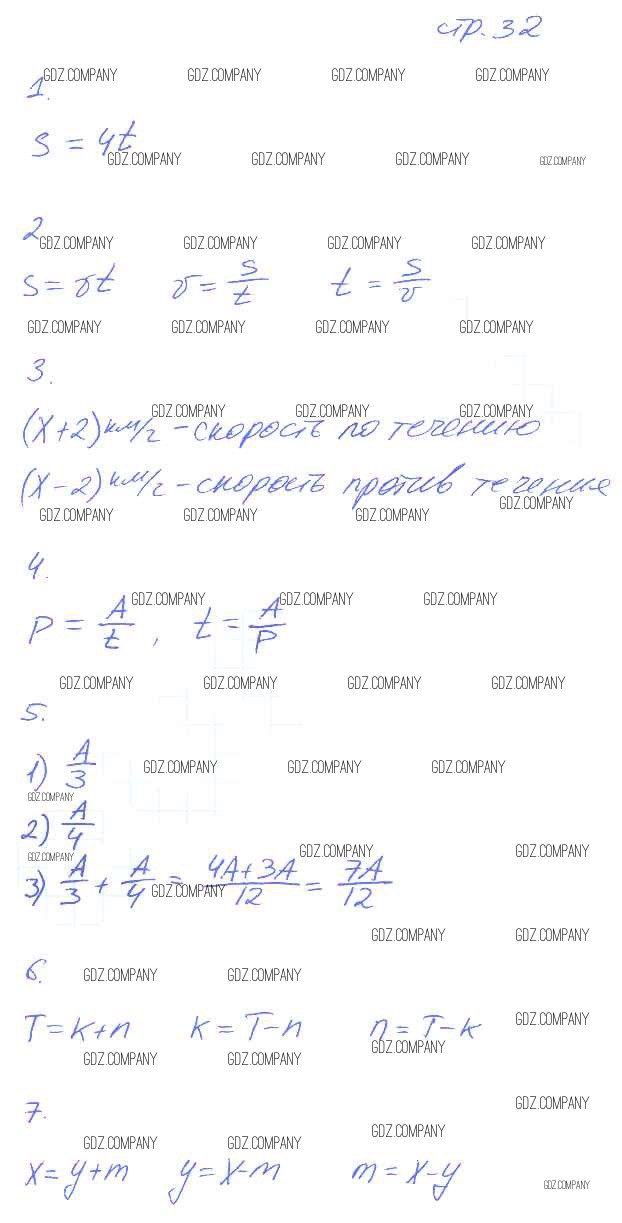 стр. 32
GDZ.COMPANY GDZ.COMPANY GDZ.COMPANY GDZ.COMPANY
1.
S = 4t
GDZ.COMPANY GDZ.COMPANY GDZ.COMPANY GDZ.COMPANY
2
GDZ.COMPANY GDZ.COMPANY GDZ.COMPANY GDZ.COMPANY
S = vt v = s/t t = s/v
GDZ.COMPANY GDZ.COMPANY GDZ.COMPANY GDZ.COMPANY
3.
GDZ.COMPANY GDZ.COMPANY GDZ.COMPANY
(x+2) км/г - скорость по течению
(x-2) км/г - скорость против течения
GDZ.COMPANY GDZ.COMPANY GDZ.COMPANY GDZ.COMPANY
4.
GDZ.COMPANY GDZ.COMPANY GDZ.COMPANY
P = A/t , t = A/P
GDZ.COMPANY GDZ.COMPANY GDZ.COMPANY GDZ.COMPANY
5.
1) A/3 GDZ.COMPANY GDZ.COMPANY GDZ.COMPANY
GDZ.COMPANY
2) A/4
GDZ.COMPANY GDZ.COMPANY GDZ.COMPANY
3) A/3 + A/4 = 4A+3A/12 = 7A/12
GDZ.COMPANY
GDZ.COMPANY GDZ.COMPANY
6. GDZ.COMPANY GDZ.COMPANY
T = k+n k = T-n n = T-k GDZ.COMPANY
GDZ.COMPANY GDZ.COMPANY GDZ.COMPANY
7. GDZ.COMPANY
GDZ.COMPANY GDZ.COMPANY GDZ.COMPANY
x = y+m y = x-m m = x-y GDZ.COMPANY